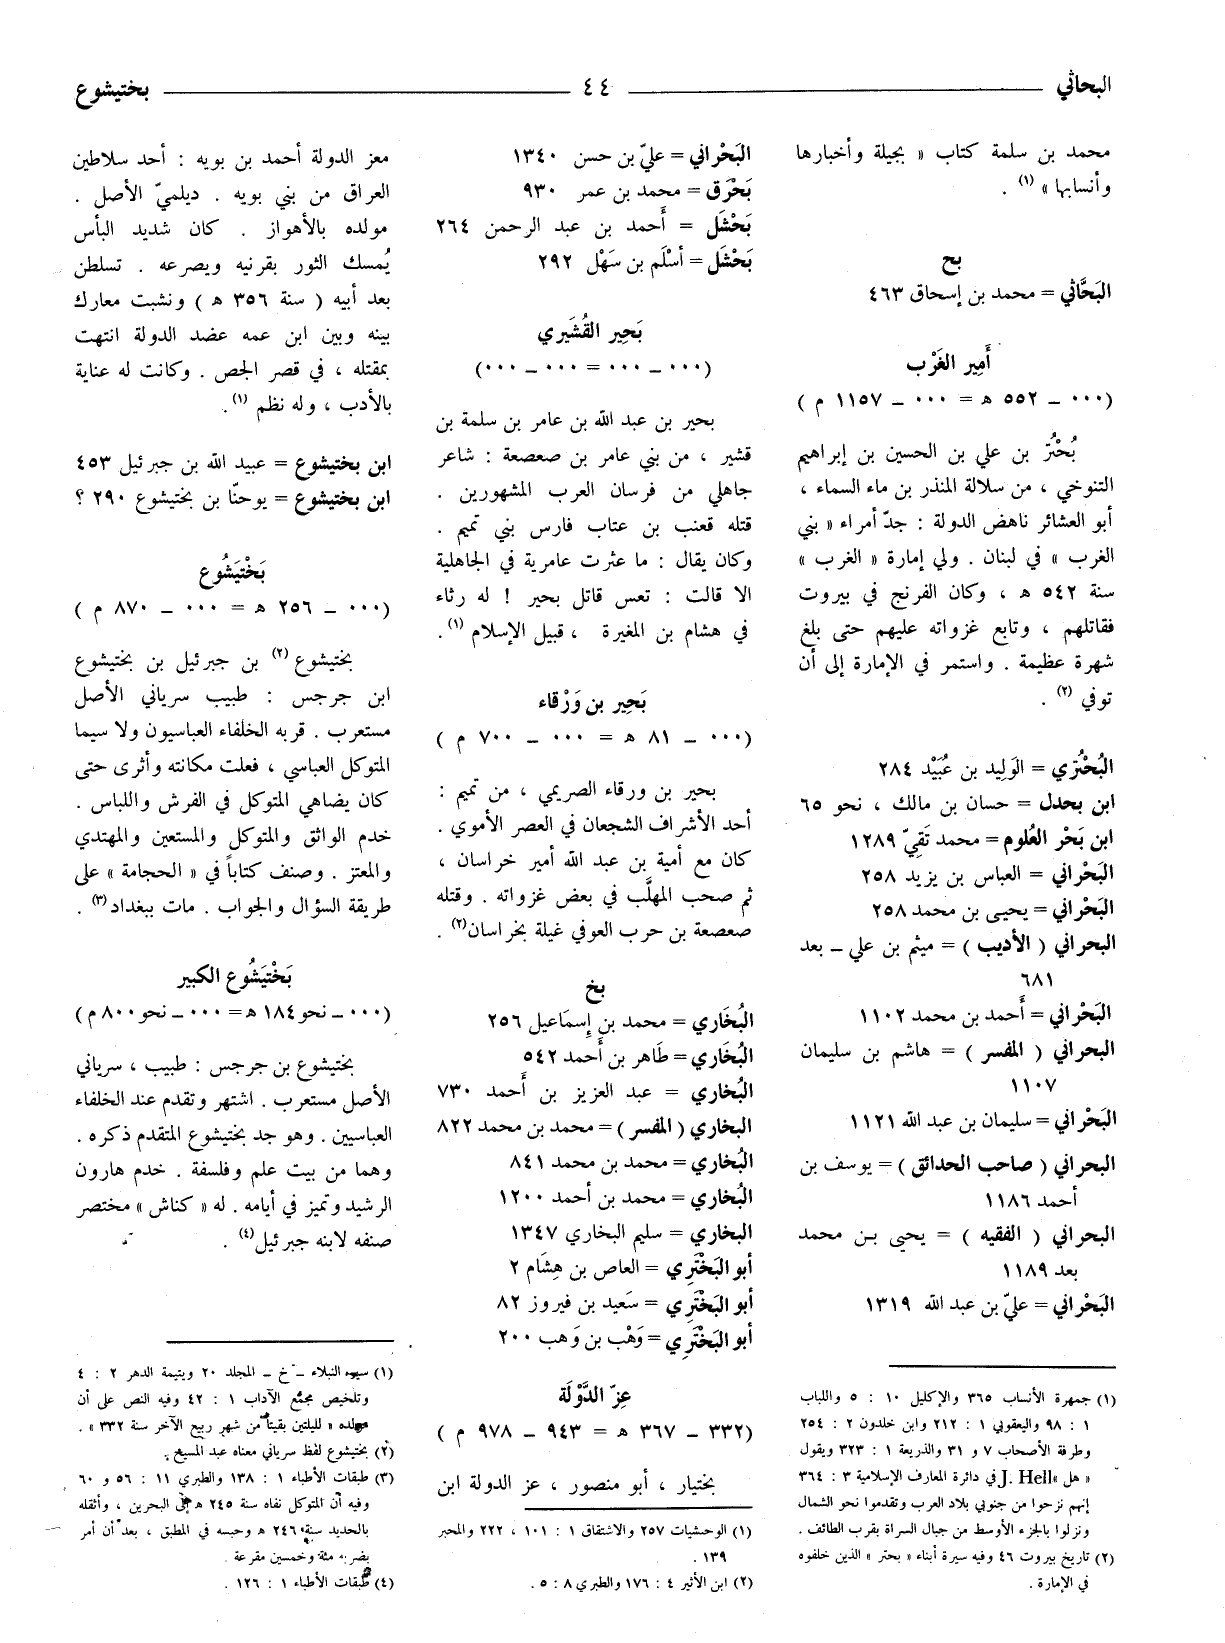 البحاثي ٤٤ بختيشوع
محمد بن سلمة كتاب « بجيلة وأخبارها
وأنسابها » (١) .
بح
البَحَّاثي = محمد بن إسحاق ٤٦٣
أَمِير الغَرْب
(٠٠٠ ــ ٥٥٢ ه = ٠٠٠ ــ ١١٥٧ م )
بُحْتُر بن علي بن الحسين بن إبراهيم
التنوخي ، من سلالة المنذر بن ماء السماء ،
أبو العشائر ناهض الدولة : جدّ أمراء « بني
الغرب » في لبنان . ولي إمارة « الغرب »
سنة ٥٤٢ ه ، وكان الفرنج في بيروت
فقاتلهم ، وتابع غزواته عليهم حتى بلغ
شهرة عظيمة . واستمر في الإمارة إلى أن
توفي (٢) .
البُحْتُري = الوَليد بن عُبَيْد ٢٨٤
ابن بحدل = حسان بن مالك ، نحو ٦٥
ابن بَحْر العُلوم = محمد تَقِيّ ١٢٨٩
البَحْراني = العباس بن يزيد ٢٥٨
البَحْراني = يحيى بن محمد ٢٥٨
البحراني ( الأديب ) = ميثم بن علي ــ بعد
٦٨١
البَحْراني = أَحمد بن محمد ١١٠٢
البحراني ( المفسر ) = هاشم بن سليمان
١١٠٧
البَحْراني = سليمان بن عبد الله ١١٢١
البحراني ( صاحب الحدائق ) = يوسف بن
أحمد ١١٨٦
البحراني ( الفقيه ) = يحيى بن محمد
بعد ١١٨٩
البَحْراني = عليّ بن عبد الله ١٣١٩
(١) جمهرة الأنساب ٣٦٥ والإكليل ١٠ : ٥ واللباب
١ : ٩٨ واليعقوبي ١ : ٢١٢ وابن خلدون ٢ : ٢٥٤
وطرفة الأصحاب ٧ و ٣١ والذريعة ١ : ٣٢٣ ويقول
« هل J. Hell» في دائرة المعارف الإسلامية ٣ : ٣٦٤
إنهم نزحوا من جنوبي بلاد العرب وتقدموا نحو الشمال
ونزلوا بالجزء الأوسط من جبال السراة بقرب الطائف .
(٢) تاريخ بيروت ٤٦ وفيه سيرة أبناء « بحتر » الذين خلفوه
في الإمارة .
البَحْراني = عليّ بن حسن ١٣٤٠
بَحْرَق = محمد بن عمر ٩٣٠
بَحْشَل = أَحمد بن عبد الرحمن ٢٦٤
بَحْشَل = أسْلَم بن سَهْل ٢٩٢
بَحِير القُشَيري
(٠٠٠ ــ ٠٠٠ = ٠٠٠ ــ ٠٠٠)
بحير بن عبد الله بن عامر بن سلمة بن
قشير ، من بني عامر بن صعصعة : شاعر
جاهلي من فرسان العرب المشهورين .
قتله قعنب بن عتاب فارس بني تميم .
وكان يقال : ما عثرت عامرية في الجاهلية
الا قالت : تعس قاتل بحير ! له رثاء
في هشام بن المغيرة ، قبيل الإسلام (١) .
بَحِير بن وَرْقاء
(٠٠٠ ــ ٨١ ه = ٠٠٠ ــ ٧٠٠ م )
بحير بن ورقاء الصريمي ، من تميم :
أحد الأشراف الشجعان في العصر الأموي .
كان مع أمية بن عبد الله أمير خراسان ،
ثم صحب المهلَّب في بعض غزواته . وقتله
صعصعة بن حرب العوفي غيلة بخراسان(٢) .
بخ
البُخَاري = محمد بن إِسمَاعيل ٢٥٦
البُخَاري = طَاهر بن أَحمد ٥٤٢
البُخاري = عبد العزيز بن أَحمد ٧٣٠
البخاري ( المفسر ) = محمد بن محمد ٨٢٢
البُخاري = محمد بن محمد ٨٤١
البُخاري = محمد بن أحمد ١٢٠٠
البخاري = سليم البخاري ١٣٤٧
أبو البَخْتَري = العاص بن هِشَام ٢
أبو البَخْتَري = سَعيد بن فيروز ٨٢
أبو البَخْتَري = وَهْب بن وَهب ٢٠٠
عِزّ الدَّوْلَة
(٣٣٢ ــ ٣٦٧ ه = ٩٤٣ ــ ٩٧٨ م )
بختيار ، أبو منصور ، عز الدولة ابن
(١) الوحشيات ٢٥٧ والاشتقاق ١ : ١٠١ ، ٢٢٢ والمحبر
١٣٩ .
(٢) ابن الأثير ٤ : ١٧٦ والطبري ٨ : ٥ .
معز الدولة أحمد بن بويه : أحد سلاطين
العراق من بني بويه . ديلميّ الأصل .
مولده بالأهواز . كان شديد البأس
يُمسك الثور بقرنيه ويصرعه . تسلطن
بعد أبيه ( سنة ٣٥٦ ه ) ونشبت معارك
بينه وبين ابن عمه عضد الدولة انتهت
بمقتله ، في قصر الجص . وكانت له عناية
بالأدب ، وله نظم (١) .
ابن بختيشوع = عبيد الله بن جبرئيل ٤٥٣
ابن بختيشوع = يوحنّا بن بختيشوع ٢٩٠ ؟
بَخْتَيَشُوع
(٠٠٠ ــ ٢٥٦ ه = ٠٠٠ ــ ٨٧٠ م )
بختيشوع (٢) بن جبرئيل بن بختيشوع
ابن جرجس : طبيب سرياني الأصل
مستعرب . قربه الخلفاء العباسيون ولا سيما
المتوكل العباسي ، فعلت مكانته وأثرى حتى
كان يضاهي المتوكل في الفرش واللباس .
خدم الواثق والمتوكل والمستعين والمهتدي
والمعتز . وصنف كتاباً في « الحجامة » على
طريقة السؤال والجواب . مات ببغداد(٣) .
بَخْتَيَشُوع الكبير
(٠٠٠ ــ نحو ١٨٤ ه = ٠٠٠ ــ نحو ٨٠٠ م )
بختيشوع بن جرجس : طبيب ، سرياني
الأصل مستعرب . اشتهر وتقدم عند الخلفاء
العباسيين . وهو جد بختيشوع المتقدم ذكره .
وهما من بيت علم وفلسفة . خدم هارون
الرشيد وتميز في أيامه . له « كناش » مختصر
صنفه لابنه جبرئيل(٤) .
(١) سير النبلاء ــ خ ــ المجلد ٢٠ ويتيمة الدهر ٢ : ٤
وتلخيص مجمع الآداب ١ : ٤٢ وفيه النص على أن
مولده « لليلتين بقيتا من شهر ربيع الآخر سنة ٣٣٢ » .
(٢) بختيشوع لفظ سرياني معناه عبد المسيح .
(٣) طبقات الأطباء ١ : ١٣٨ والطبري ١١ : ٥٦ و ٦٠
وفيه أن المتوكل نفاه سنة ٢٤٥ ه إلى البحرين ، وأثقله
بالحديد سنة ٢٤٦ ه وحبسه في المطبق ، بعد أن أمر
بضربه مئة وخمسين مقرعة .
(٤) طبقات الأطباء ١ : ١٢٦ .